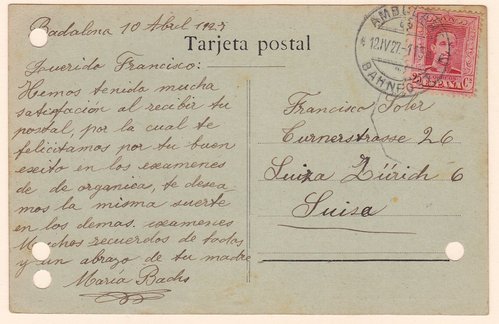 Badalona 10 Abril 1927
Tarjeta postal
Querido Francisco:
Hemos tenido mucha
satisfacción al recibir tú
postal, por la cual te
felicitamos por tu buen
exsito en los exsamenes
de de organica, te desea
mos la misma suerte
en los demas. exsamenes
Muchos recuerdos de todos
y un abrazo de tu madre
María Bachs
AMBU
12 IV 27
ESPAÑA
25 Cs
Francisco Soler
Curnerstrasse 26
Suiza Zürich 6
Suisa